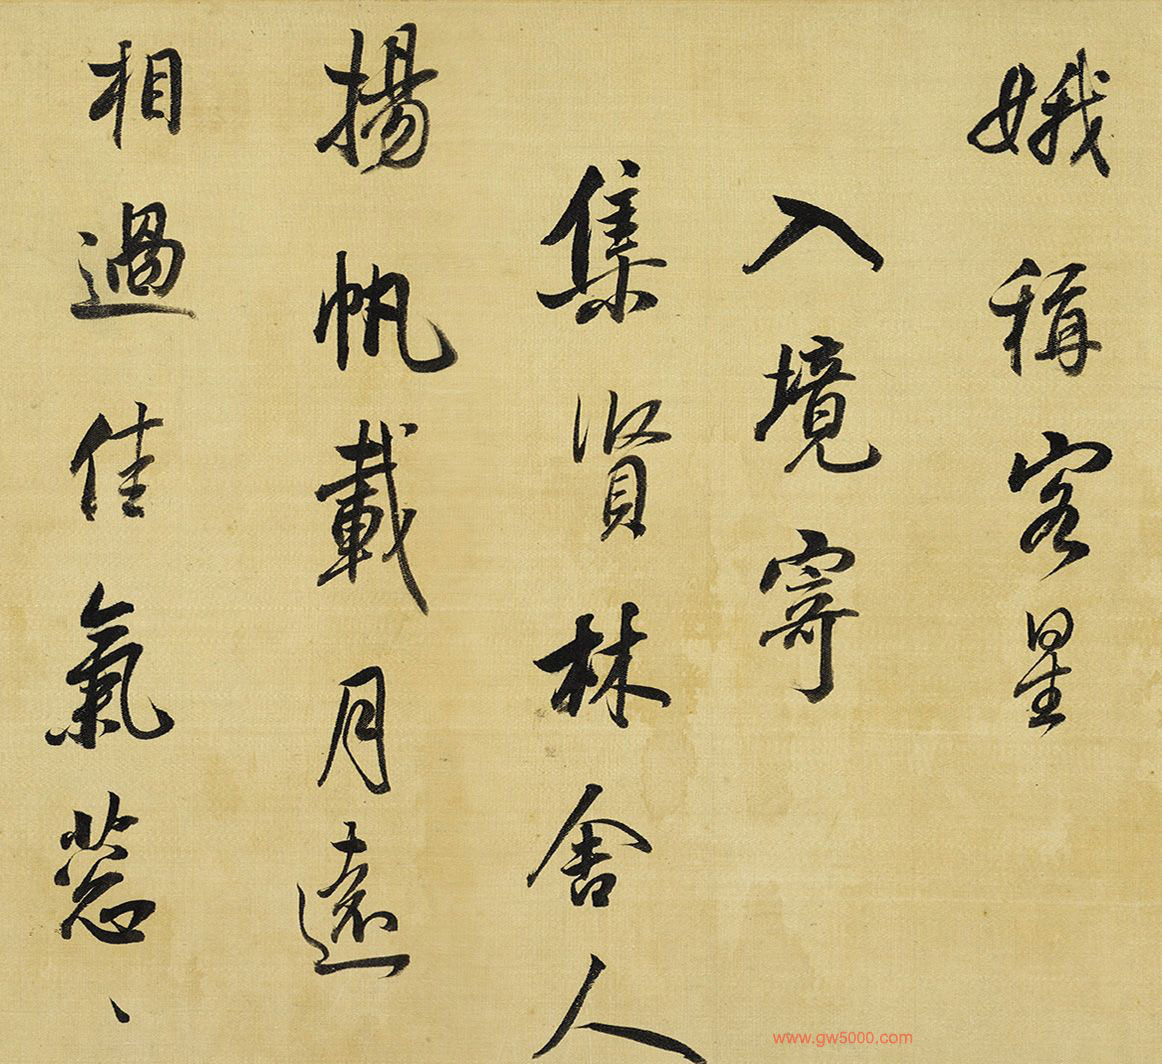 娥稱客星
入境寄
集賢林舍人
揚帆載月遠
相過佳氣葱、
www.gw5000.com